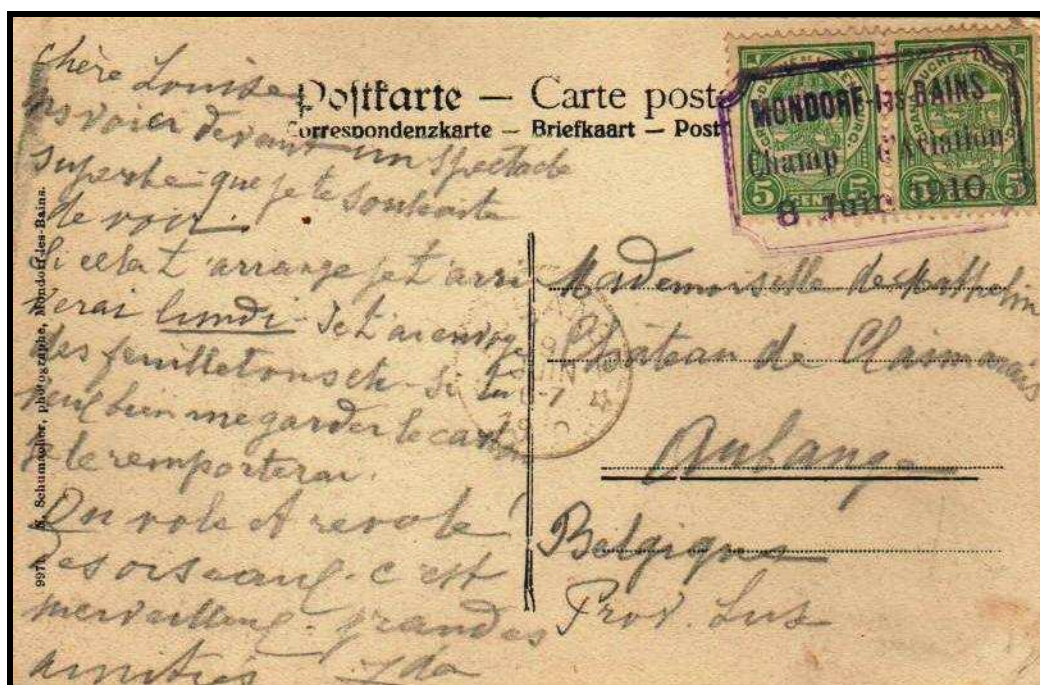 Postkarte — Carte post
Correspondenzkarte – Briefkaart – Post
MONDORF-les-BAINS
Champ d'Aviation
8 Juin 1910
5 5 5 5
N. Schumacher, photographe, Mondorf-les-Bains.
chère Louise
ns voici devant un spectacle
superbe que je te souhaite
de voir.
Si cela t'arrange je t'arri
verai lundi - Je t'ai envoyé
des feuilletons etc - Si tu
veux bien me garder le carton
je le remporterai.
On vole et revole!
des oiseaux - c'est
merveilleux - grandes
amitiés Ida
Mademoiselle de
Château de Clémarais
Aubange
Belgique
Prov. Lux